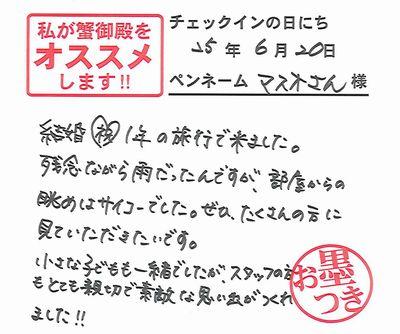 私が蟹御殿を
オススメ
します!!
チェックインの日にち
25年6月20日
ペンネーム マスオさん 様
結婚㊗1年の旅行で来ました。
残念ながら雨だったんですが、部屋からの
眺めはサイコーでした。ぜひ、たくさんの方に
見ていただきたいです。
小さな子どもも一緒でしたが、スタッフの方
もとても親切で素敵な思い出がつくれ
ました!!
お墨つき